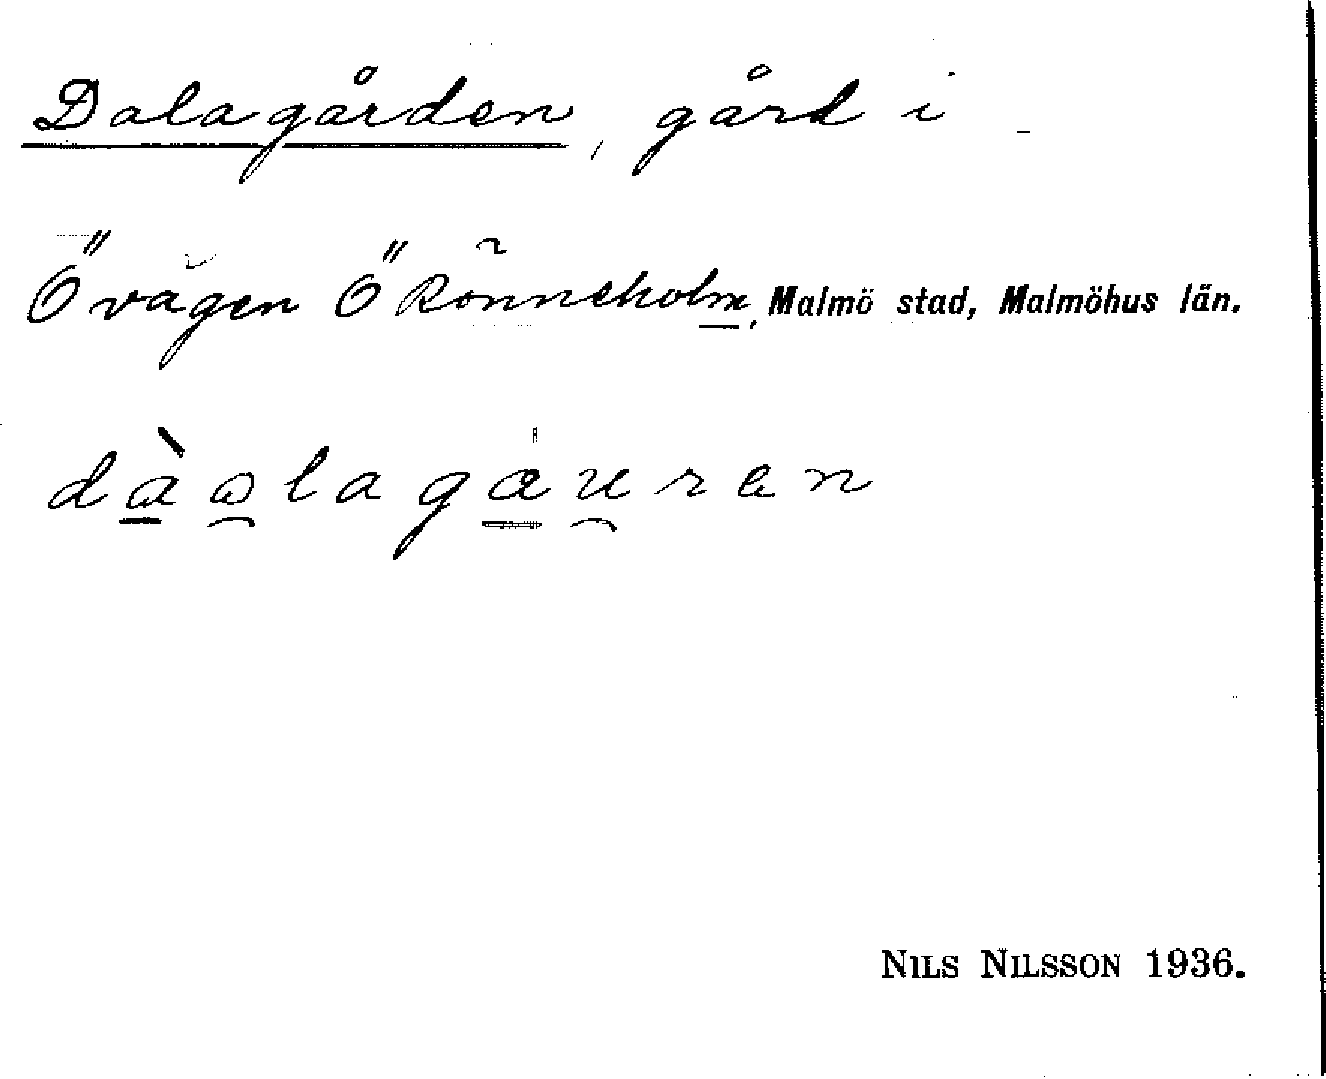 Dalagården, gård i
Övägen Ö Rönneholm, Malmö stad, Malmöhus län.
NILS NILSSON 1936.